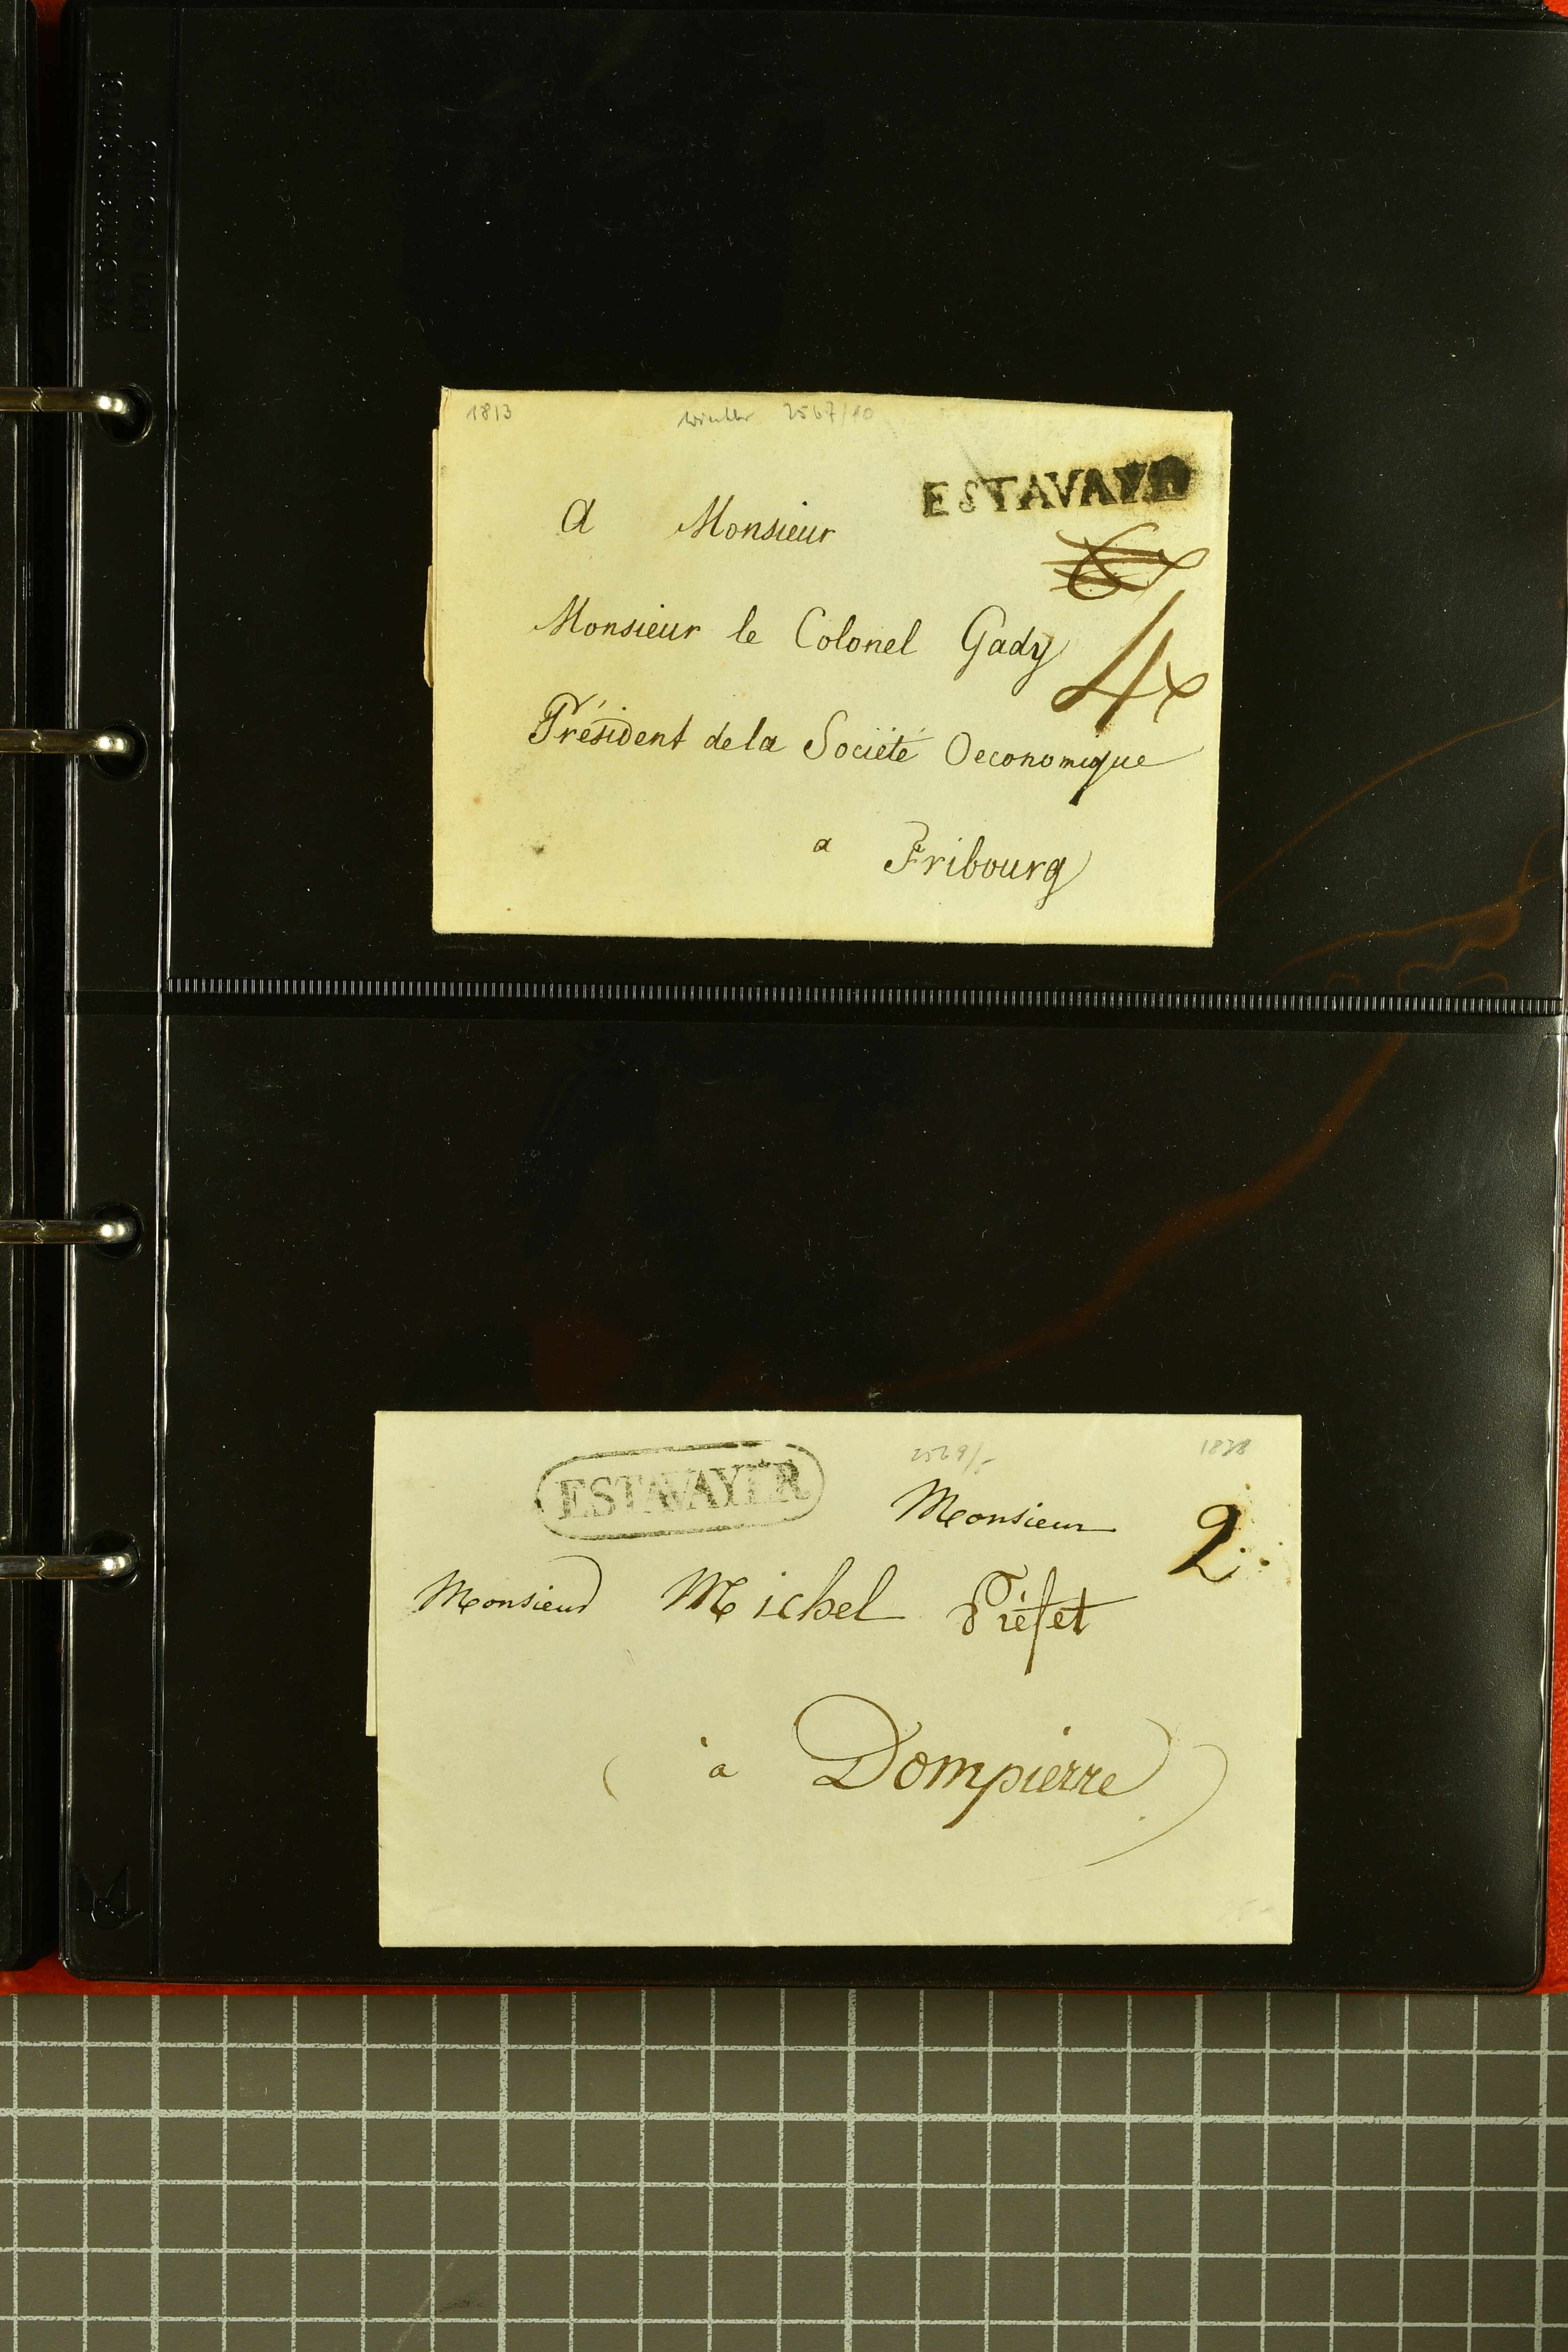 1813 2567/10
ESTAVAYE
A Monsieur
Monsieur le Colonel Gady
4x
Président de la Société Oeconomique
a Fribourg
2529/5 1838
ESTAVAYER
Monsieur
2
Monsieur Michel Préfet
à Dompierre